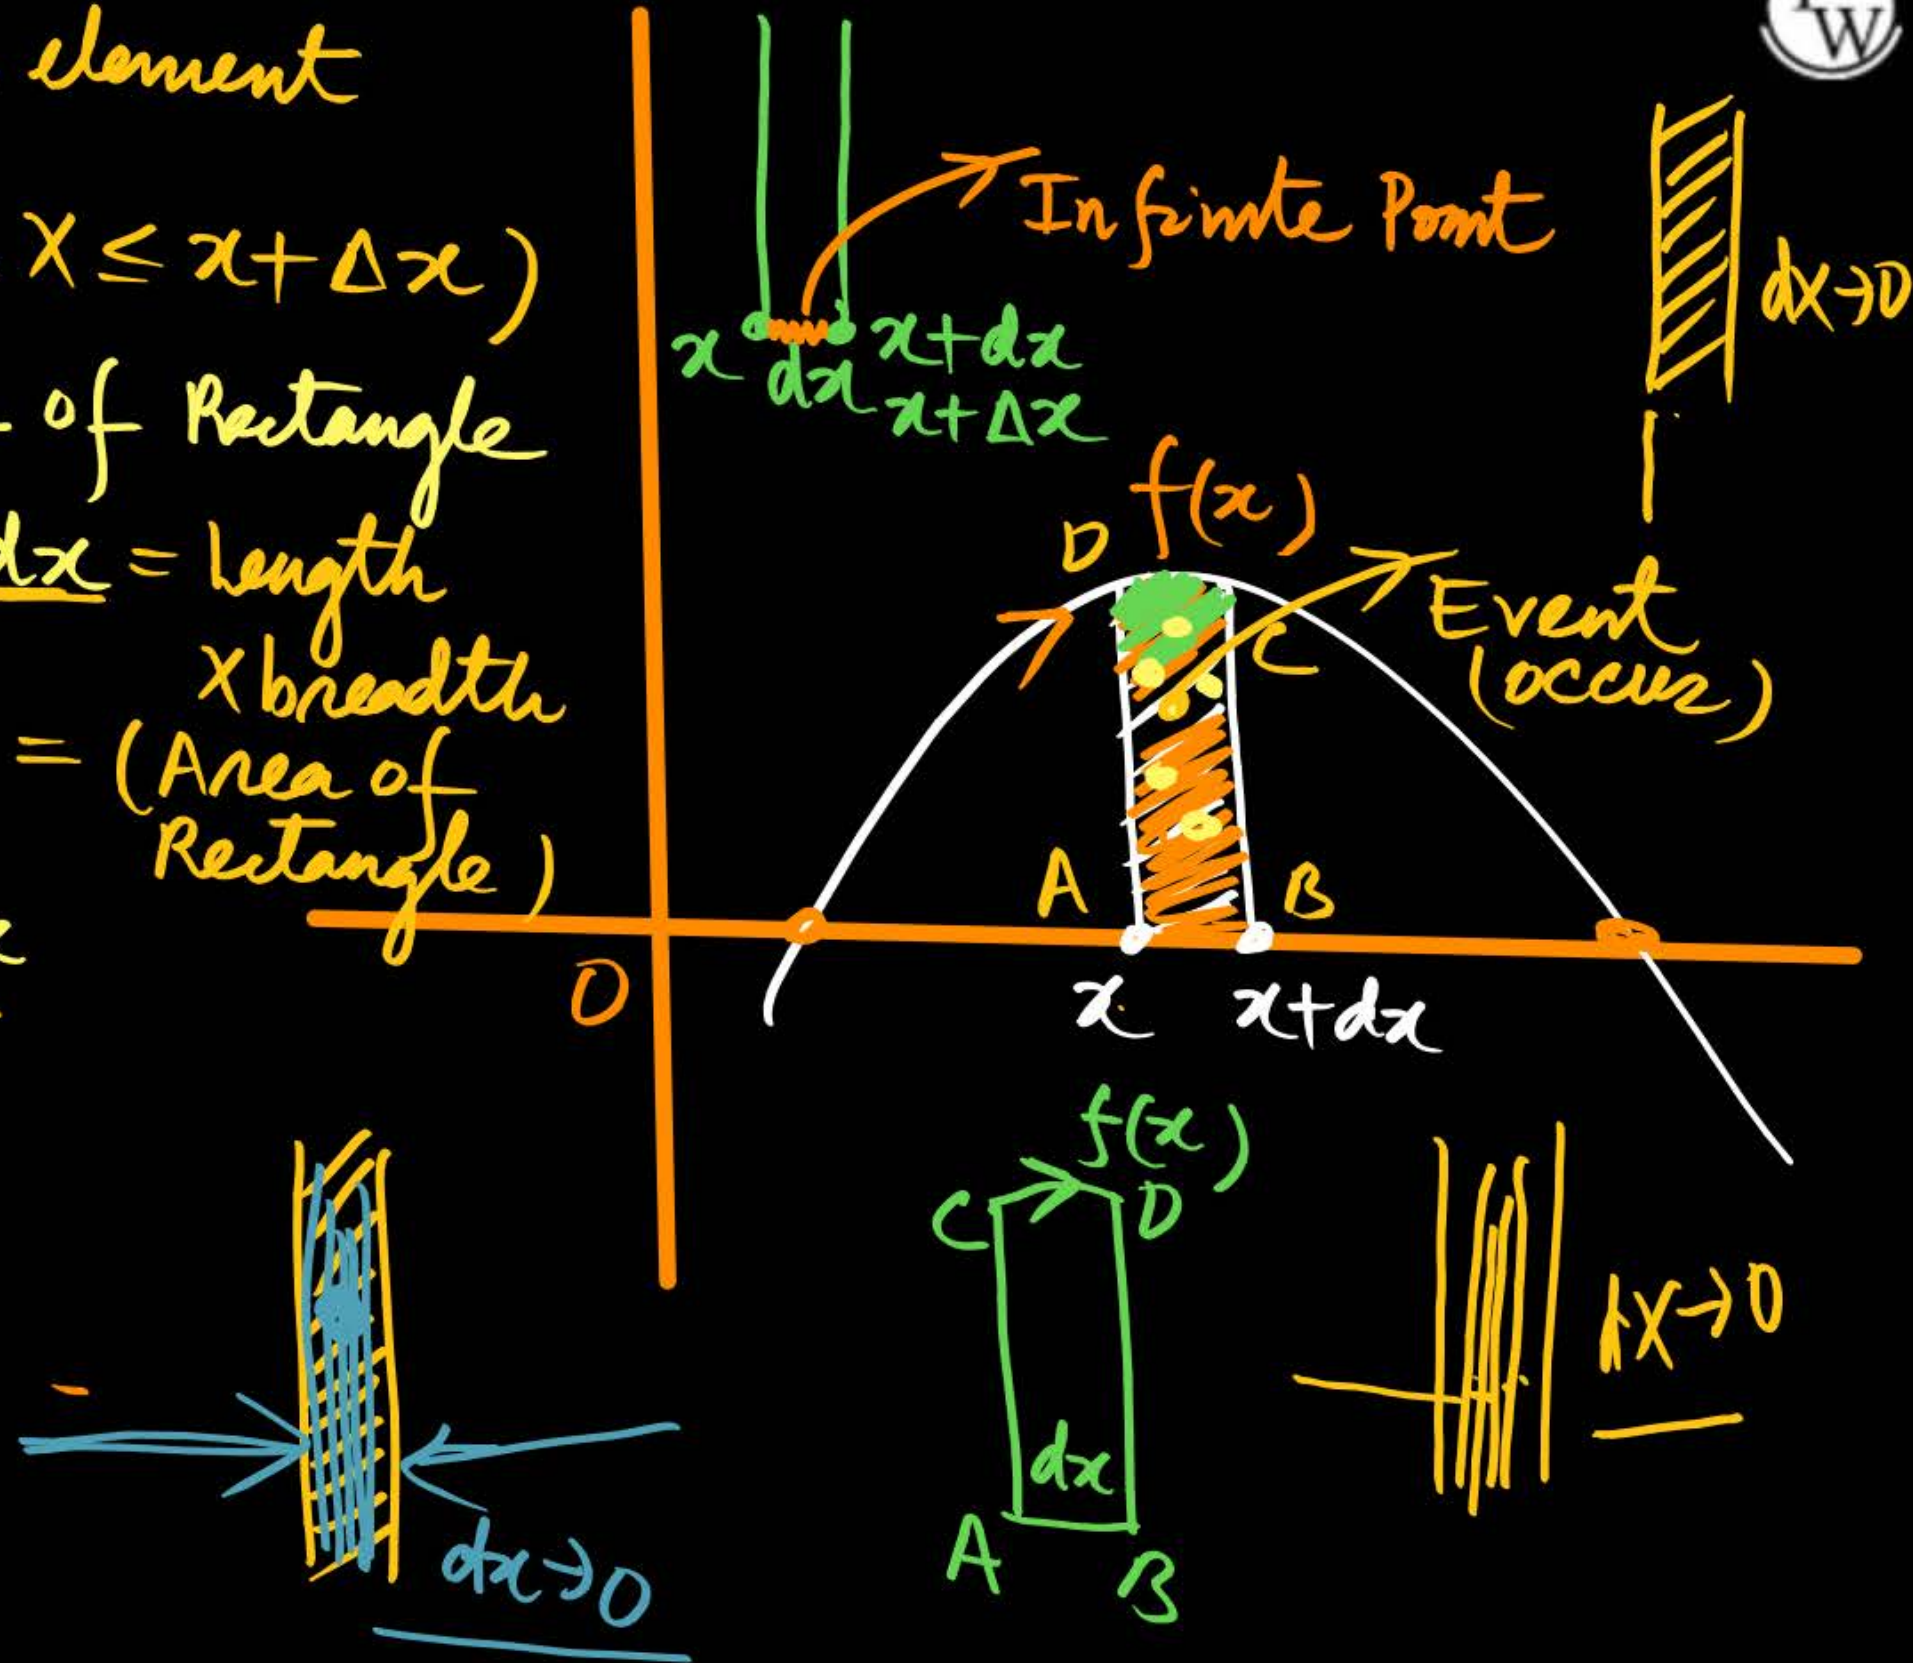 element
X ≤ x+Δx)
of Rectangle
dx = Length
X breadth
= (Area of
Rectangle)
W
Infinite Point
x
dx
x+dx
x+Δx
dX→0
f(x)
D
C
Event
(occur)
A
B
O
x
x+dx
dx→0
f(x)
C
D
dx
A
B
dX→0